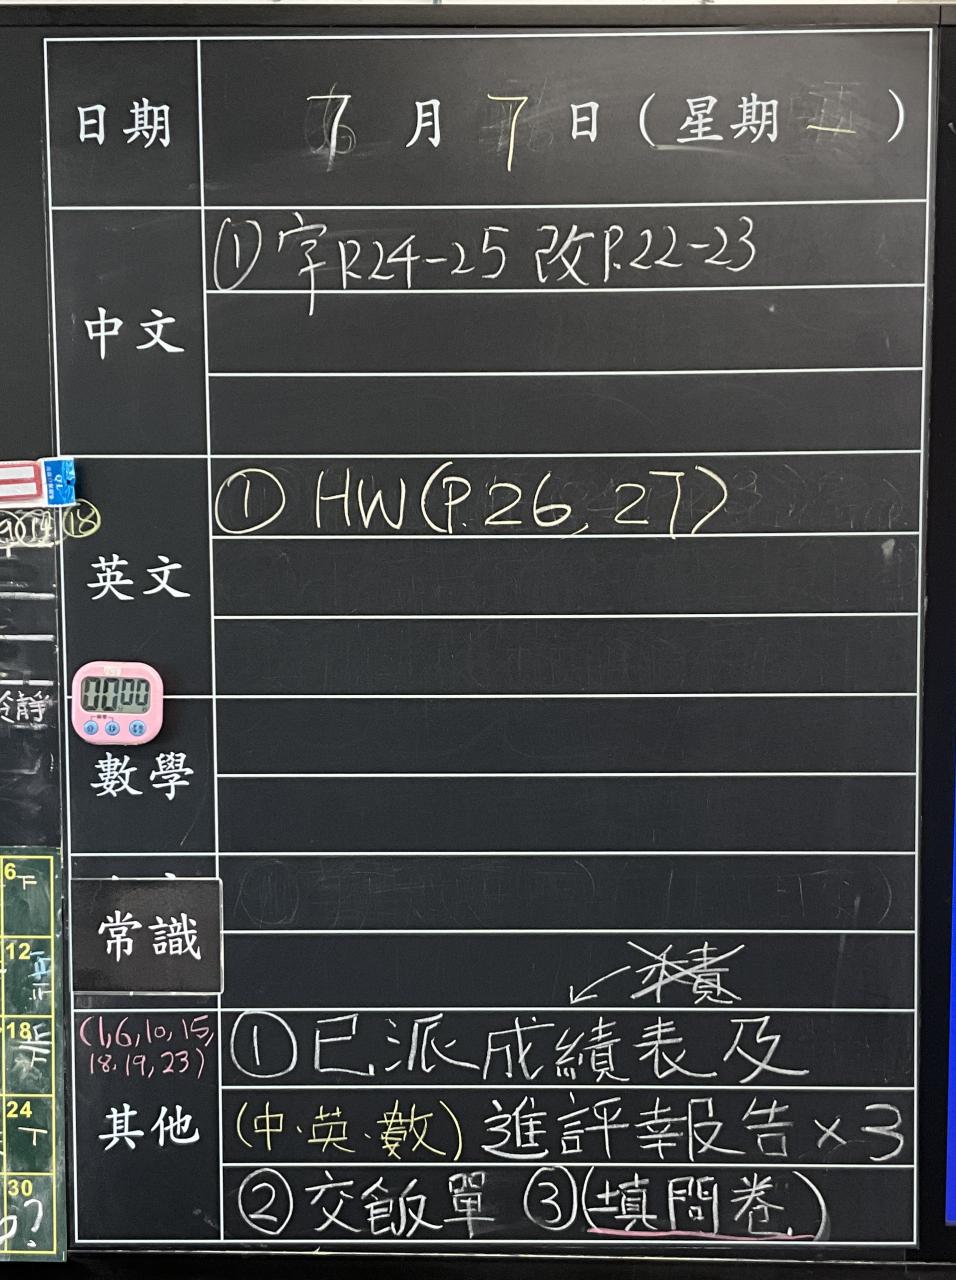 日期 7月7日(星期一)
中文
① 字P.24-25 改P.22-23
英文
① HW(P.26, 27)
18
14
冷靜
00 00
數學
常識
(1,6,10,15,
18.19,23)
其他
① 已派成績表及
(中.英.數) 進評報告×3
② 交飯單 ③(填問卷)
6
下
12
18
24
30
?